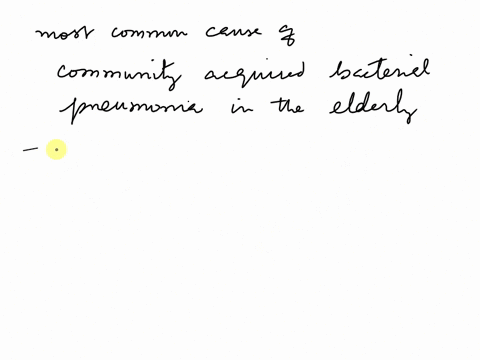 most common cause of
community acquired bacterial
pneumonia in the elderly
-